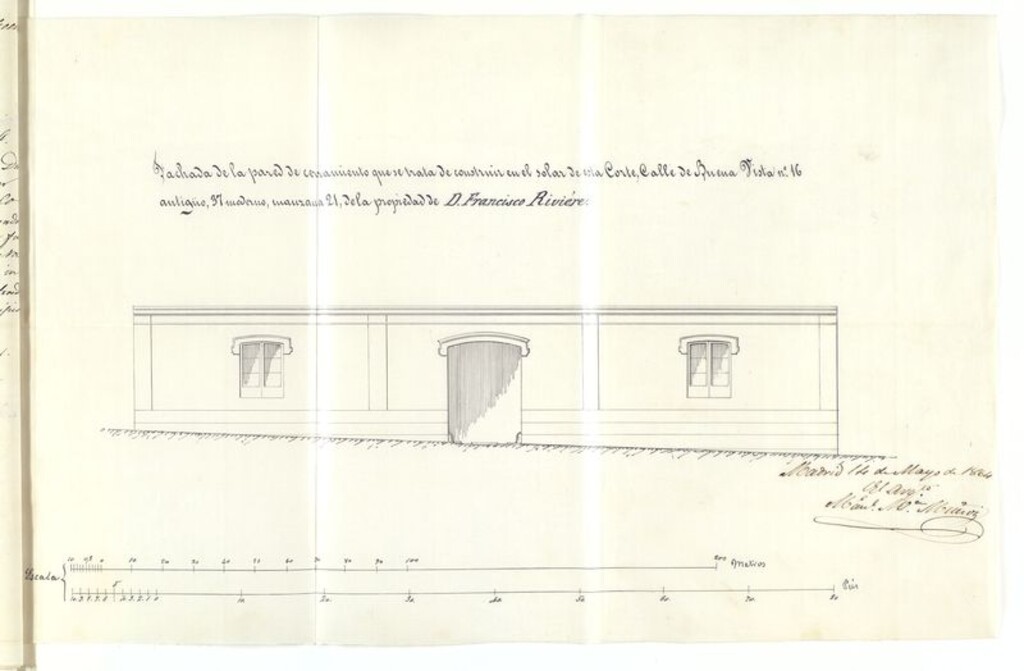 Fachada de la pared de cerramiento que se trata de construir en el solar de esta Corte, Calle de Buena Vista nº 16
antiguo, 37 moderno, manzana 21, de la propiedad de D. Francisco Riviére.
Madrid 14 de Mayo de 1864
El Arqto
Manl Ma Muñoz
Escala
10 0 10 20 30 40 50 60 70 80 90 100 200 Metros
5 10 20 30 40 50 60 70 80 Pies